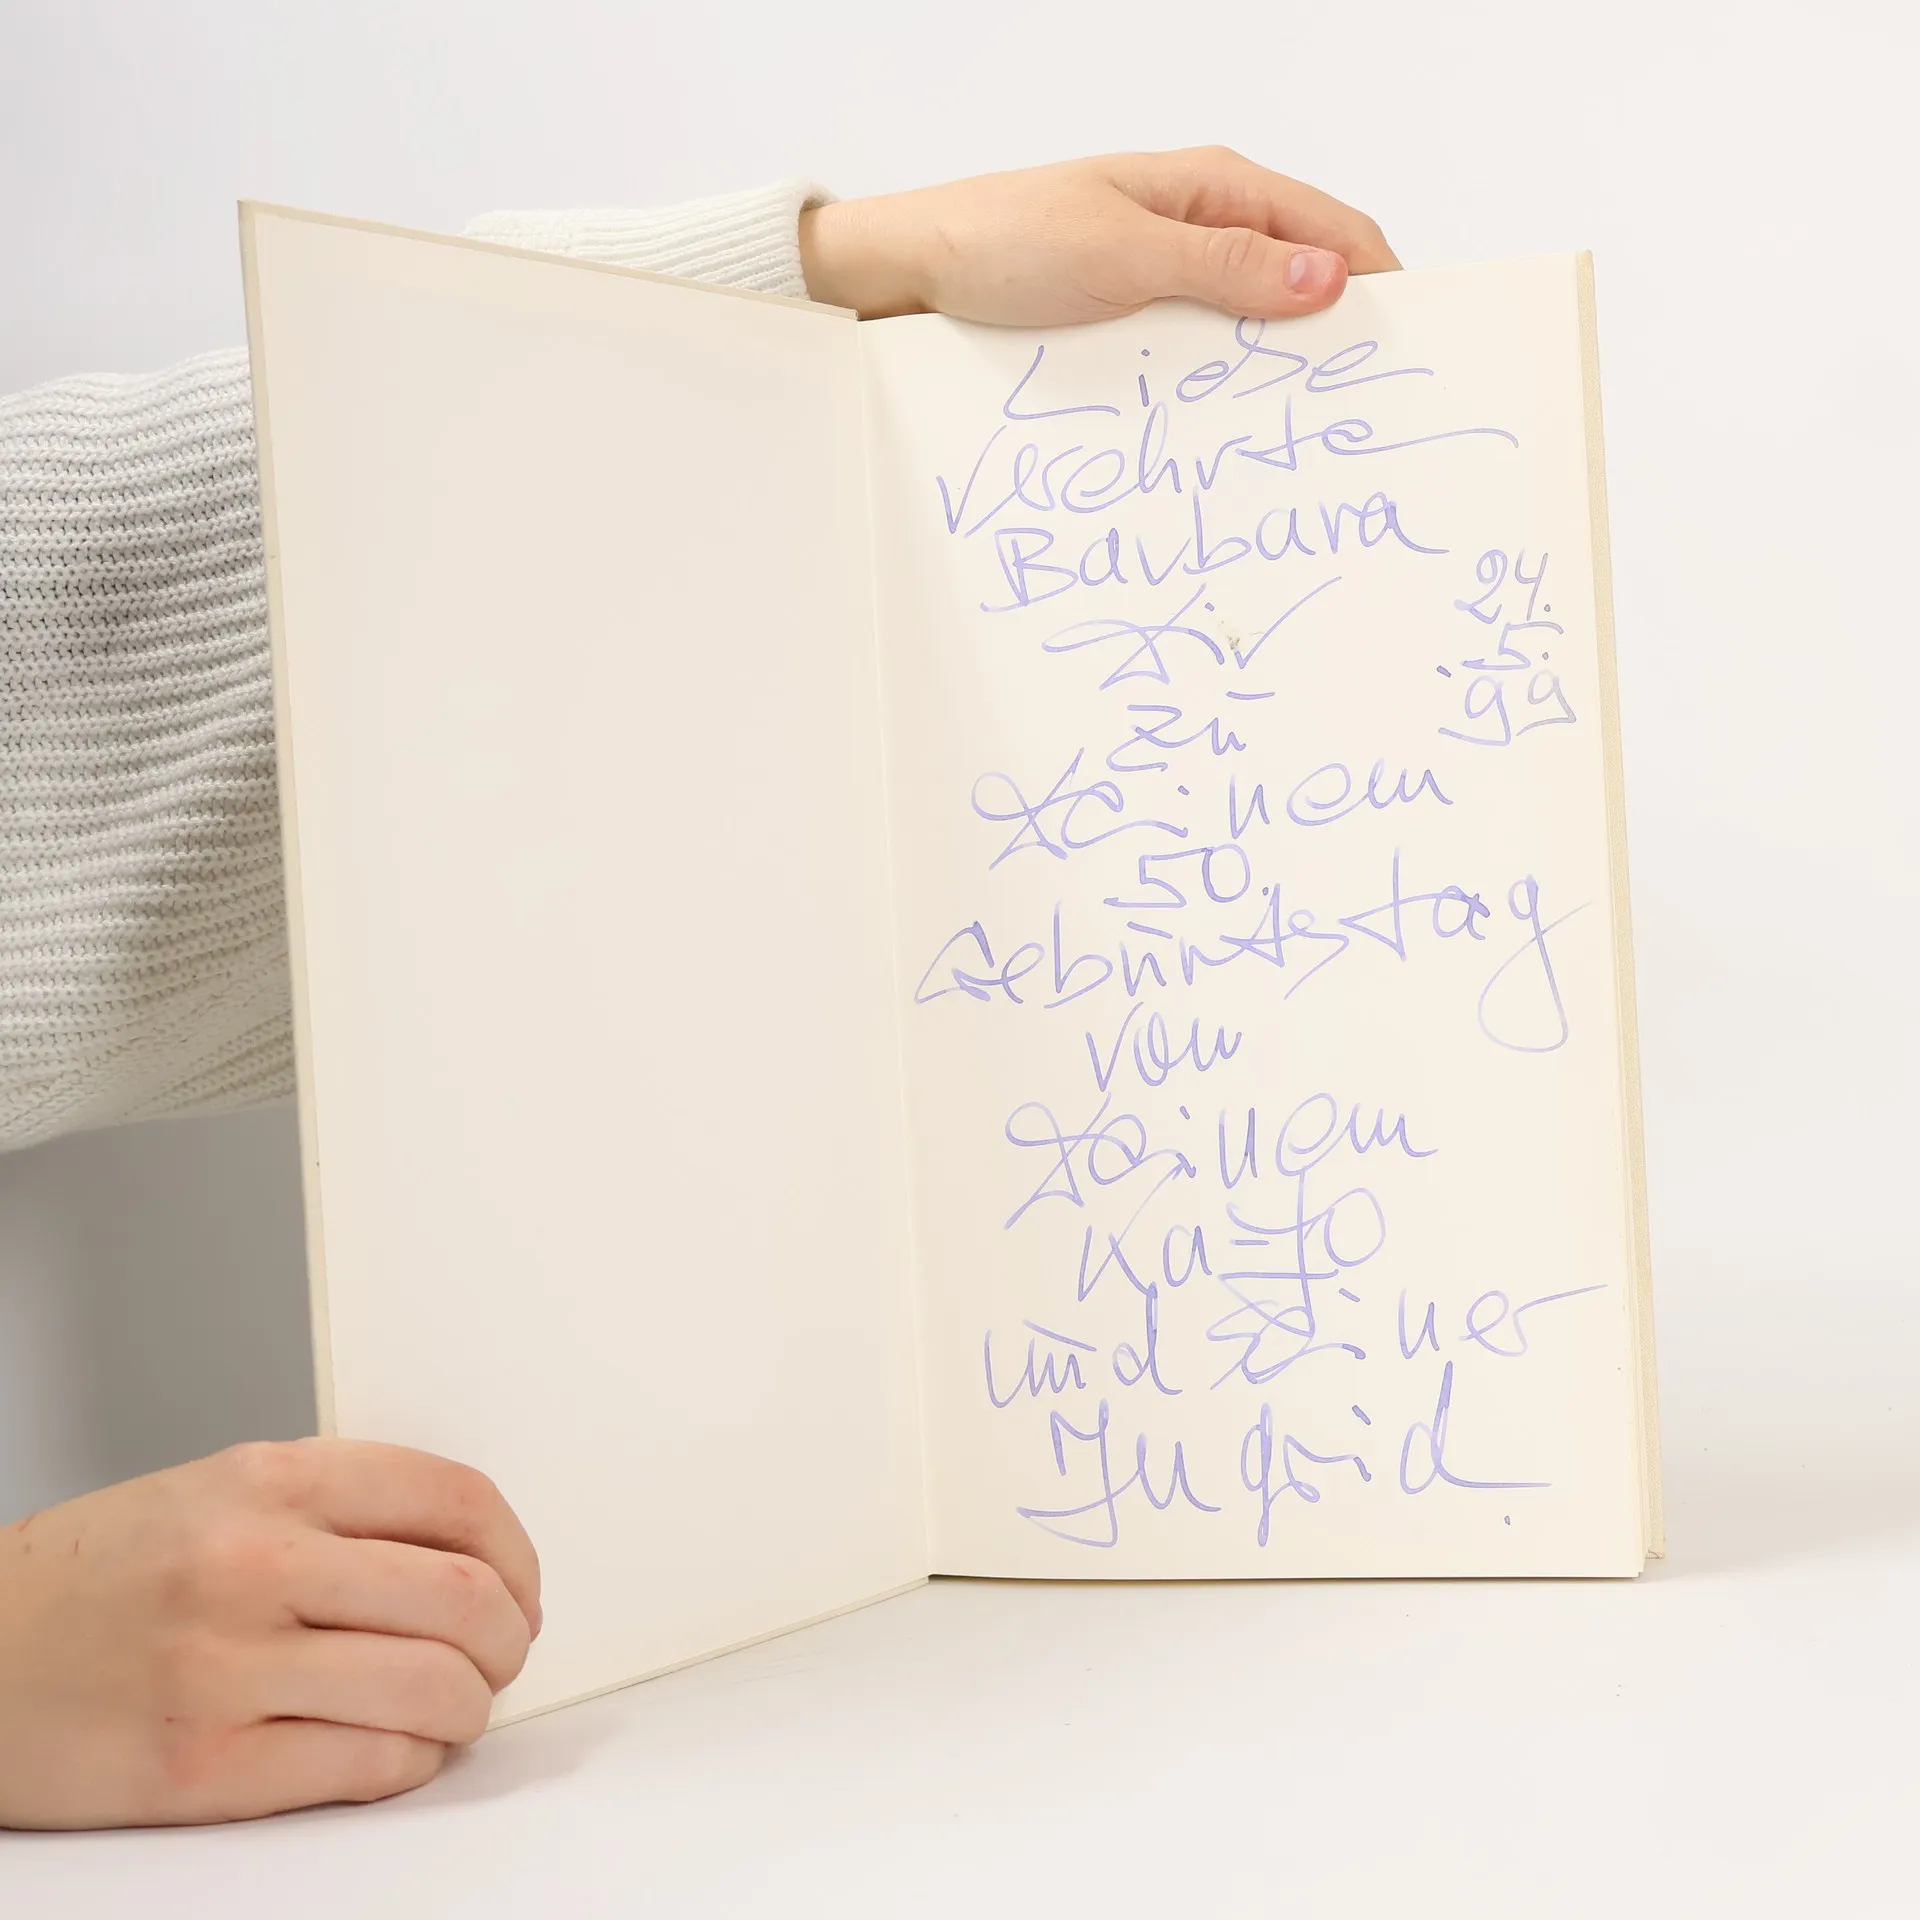 Liebe
verehrte
Barbara
Dir
zu
Deinem
50.
Geburtstag
von
Deinem
und Deiner
Ingrid.
24.
5.
'99